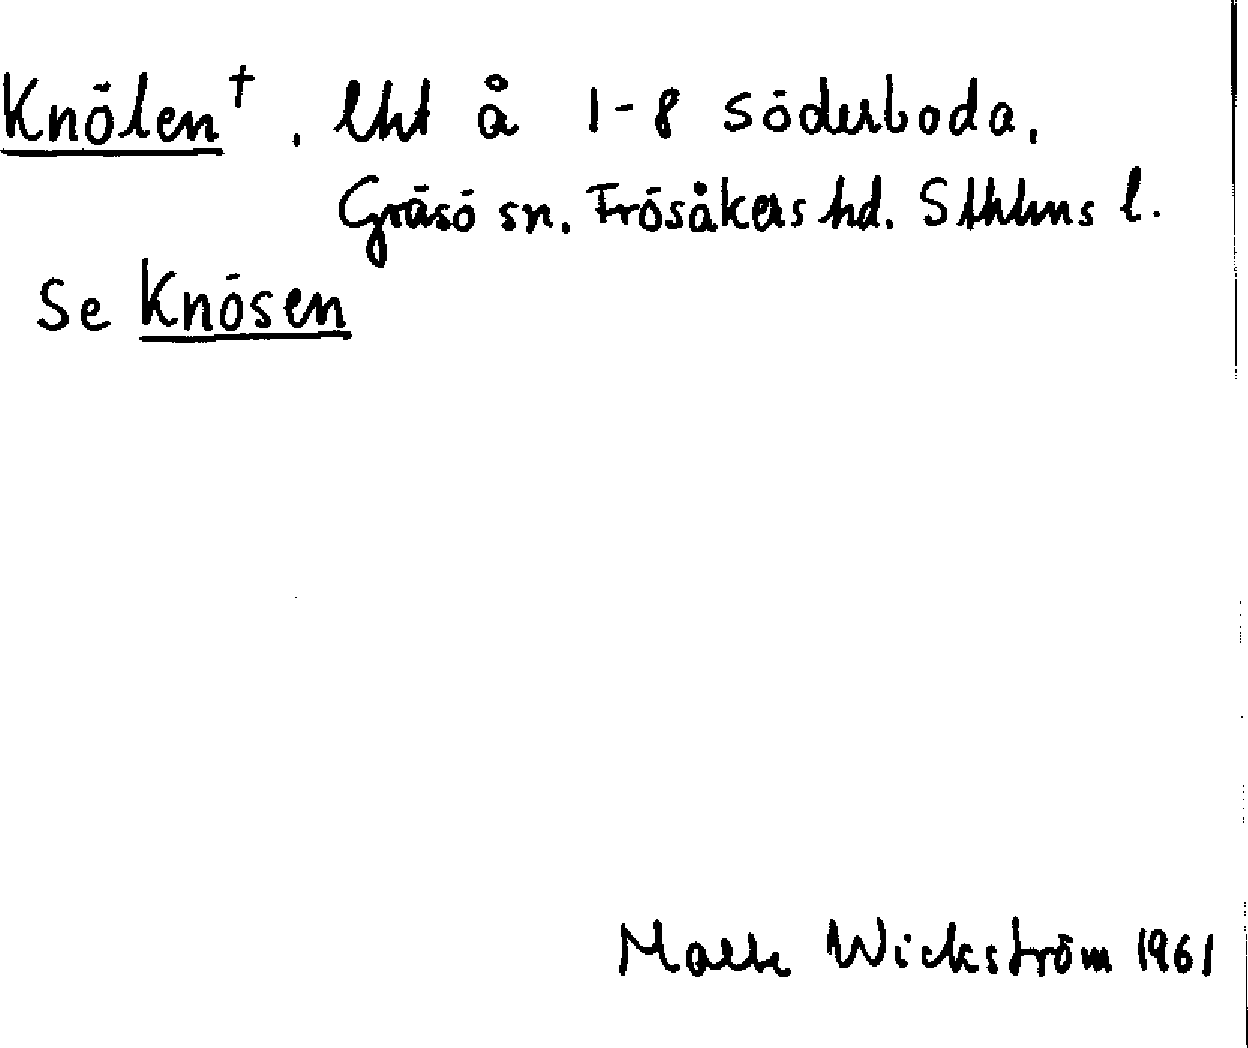 Knölen†. Lht å 1-8 Söderboda,
Gräsö sn. Frösåkers hd. Sthlms l.
Se Knösen
Malte Wickström 1961